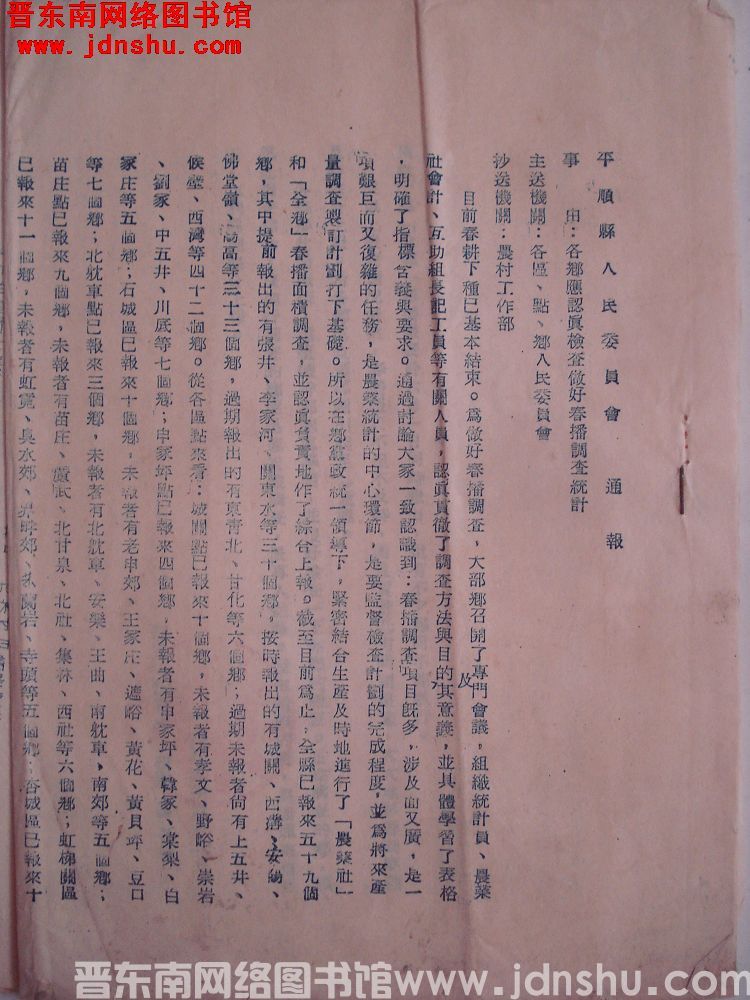 晋东南网络图书馆
www.jdnshu.com
平順縣人民委員會 通報
事 由：各鄉應認眞檢查做好春播調查統計
主送機關：各區、點、鄉人民委員會
抄送機關：農村工作部
目前春耕下種已基本結束。爲做好春播調查，大部鄉召開了專門會議，組織統計員、農業
社會計、互助組長記工員等有關人員，認眞貫徹了調查方法與目的及其意義，並具體學習了表格
，明確了指標含義與要求。通過討論大家一致認識到：春播調查項目旣多，涉及面又廣，是一
項艱巨而又復雜的任務，是農業統計的中心環節，是要監督檢查計劃的完成程度，並爲將來產
量調查製訂計劃打下基礎。所以在鄉黨政統一領導下，緊密結合生產及時地進行了「農業社」
和「全鄉」春播面積調查，並認眞負責地作了綜合上報。截至目前爲止，全縣已報來五十九個
鄉，其中提前報出的有張井、李家河、關東水等三十個鄉，按時報出的有城關、西溝、安陽、
佛堂嶺、高等三十三個鄉，過期報出的有東青北、甘化等六個鄉；過期未報者尙有上五井、
候壁、西灣等四十二個鄉。從各區點來看：城關點已報來十個鄉，未報者有孝文、野峪、崇岩
、劉家、中五井、川底等七個鄉；申家坪點已報來四個鄉，未報者有申家坪、韓家、棠梨、白
家庄等五個鄉；石城區已報來十個鄉，未報者有老申郊、王家庄、遮峪、黃花、黃貝坪、豆口
等七個鄉；北躭車點已報來三個鄉，未報者有北躭車、安樂、王曲、南躭車，南郊等五個鄉；
苗庄點已報來九個鄉，未報者有苗庄、北甘泉、北社、集林、西社等六個鄉；虹梯關區
已報來十一個鄉，未報者有虹霓、臭水郊、岩、寺頭等五個鄉；杏城區已報來十
晋东南网络图书馆www.jdnshu.com